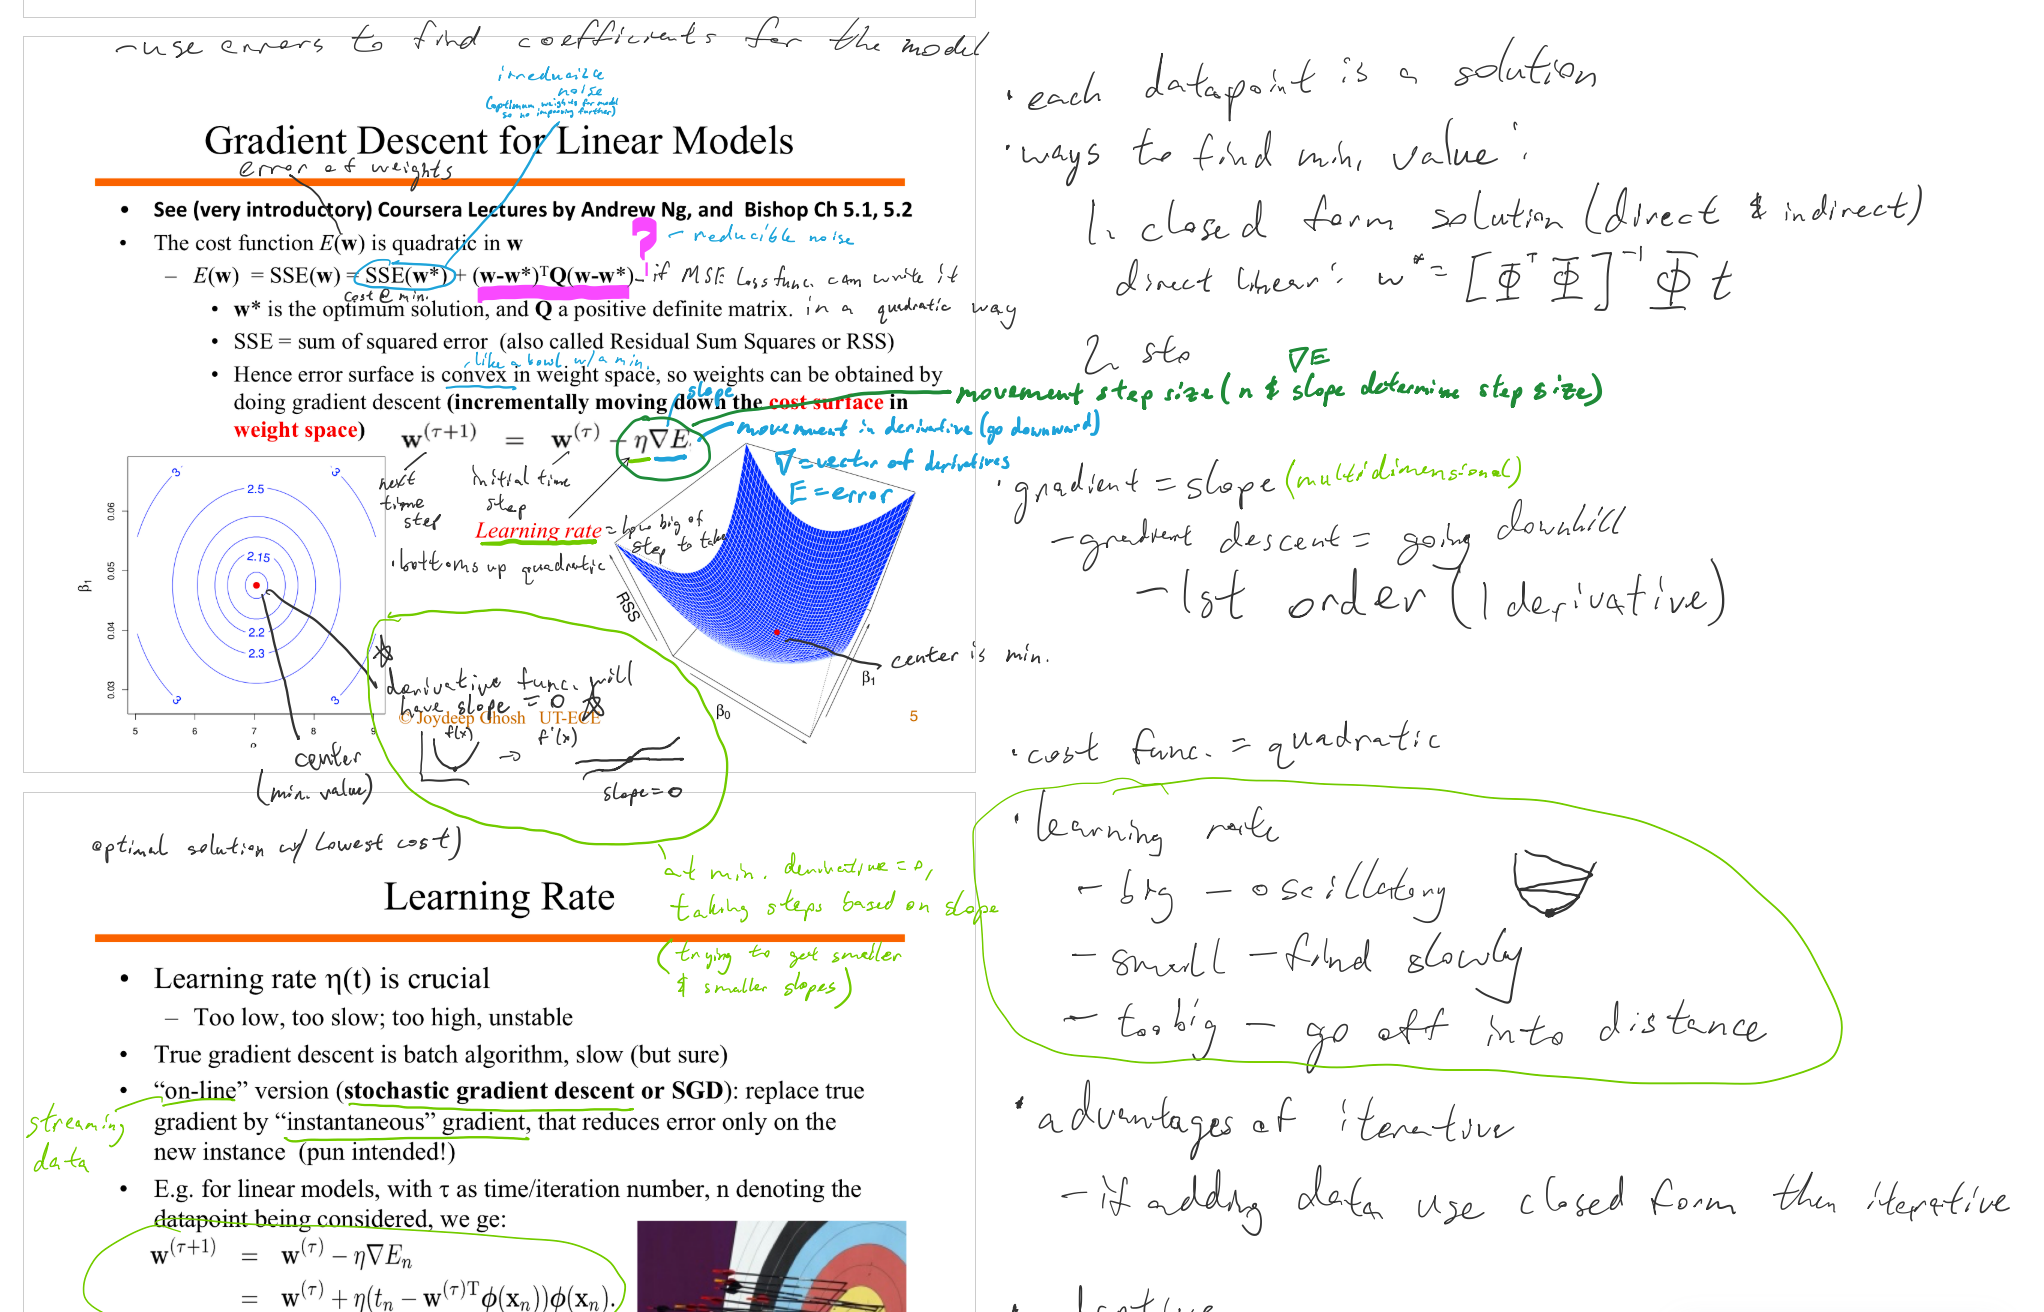 -use errors to find coefficients for the model
irreducible
noise
(optimum weights for model
so no improving further)
Gradient Descent for Linear Models
error of weights
• See (very introductory) Coursera Lectures by Andrew Ng, and Bishop Ch 5.1, 5.2
• The cost function E(w) is quadratic in w
? - reducible noise
– E(w) = SSE(w) = SSE(w*) + (w-w*)ᵀQ(w-w*) - if MSE Loss func. can write it
cost @ min.
• w* is the optimum solution, and Q a positive definite matrix. in a quadratic way
• SSE = sum of squared error (also called Residual Sum Squares or RSS)
like a bowl w/ a min.
• Hence error surface is convex in weight space, so weights can be obtained by
slope
doing gradient descent (incrementally moving down the cost surface in
weight space)
w^(τ+1) = w^(τ) − η∇E
∇E
movement step size (n & slope determine step size)
movement in derivative (go downward)
∇=vector of derivatives
E=error
next
time
step
initial time
step
Learning rate = how big of
step to take
·bottoms up quadratic
β₁
0.06
0.05
0.04
0.03
3
3
2.5
2.15
2.2
2.3
3
3
5 6 7 8 9
RSS
β₀
β₁
center is min.
derivative func. will
have slope = 0
© Joydeep Ghosh UT-ECE
5
f(x) → f'(x)
slope=0
center
(min. value)
optimal solution w/ lowest cost)
at min. derivative = 0,
taking steps based on slope
(trying to get smaller
& smaller slopes)
Learning Rate
• Learning rate η(t) is crucial
– Too low, too slow; too high, unstable
• True gradient descent is batch algorithm, slow (but sure)
• “on-line” version (stochastic gradient descent or SGD): replace true
gradient by “instantaneous” gradient, that reduces error only on the
new instance (pun intended!)
streaming
data
• E.g. for linear models, with τ as time/iteration number, n denoting the
datapoint being considered, we ge:
w^(τ+1) = w^(τ) − η∇Eₙ
= w^(τ) + η(tₙ − w^(τ)T ϕ(xₙ))ϕ(xₙ).
· each datapoint is a solution
· ways to find min. value:
1. closed form solution (direct & indirect)
direct linear: w* = [Φᵀ Φ]⁻¹ Φ t
2. sto
· gradient = slope (multidimensional)
- gradient descent = going downhill
- 1st order (1 derivative)
· cost func. = quadratic
· learning rate
- big - oscillatory
- small - find slowly
- too big - go off into distance
· advantages of iterative
- if adding data use closed form then iterative